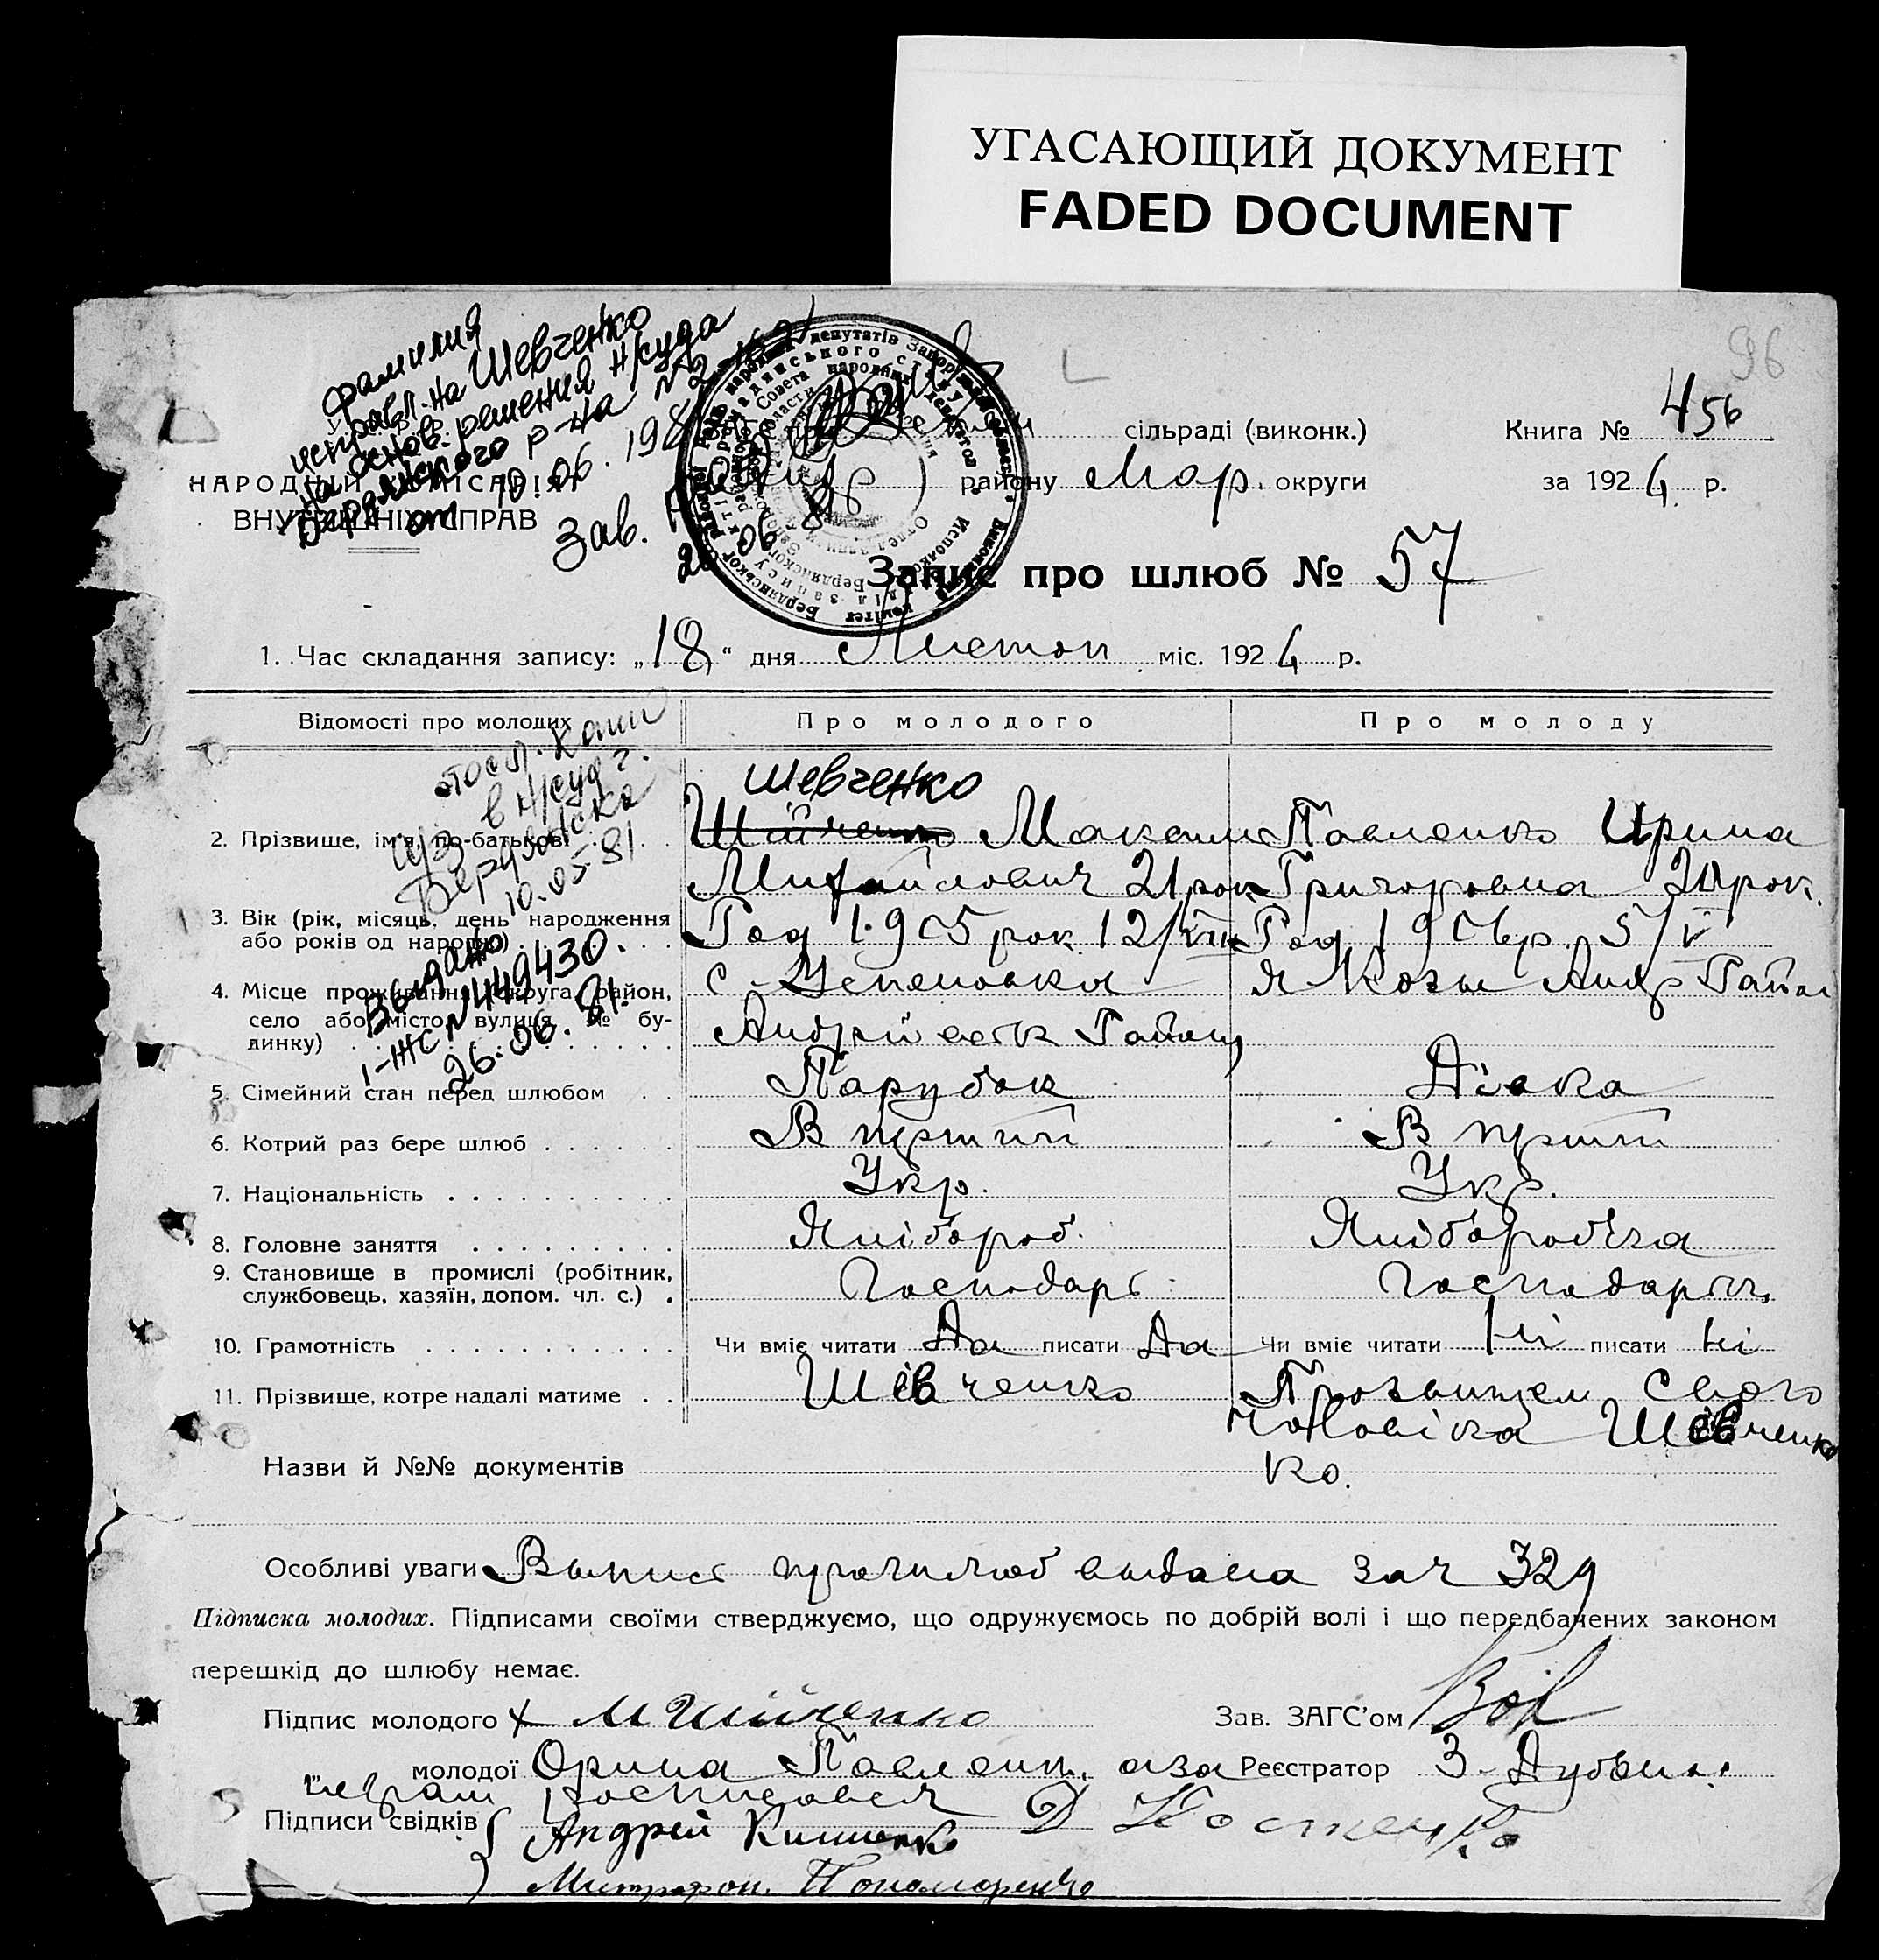 УГАСАЮЩИЙ ДОКУМЕНТ
FADED DOCUMENT
96
фамилия
исправл. на Шевченко
на основ. решения н/суда
Бердянского р-на № 2-
от 10.06.198
Зав.
26 06 81
НАРОДНІЙ КОМІСАРІЯТ
ВНУТРІШНІХ СПРАВ
сільраді (виконк.)
Книга № 456
району Мар. округи
за 1924 р.
Запис про шлюб № 57
1. Час складання запису: „18“ дня Листоп міс. 1924 р.
Відомості про молодих
Про молодого
Про молоду
посл. копи
в н/суд г.
Бердянска
10.05.81
Шевченко
2. Прізвище, ім'я, по-батькові
Шийченко Максим
Михайлович 21 рок
Павленко Ирина
Григоровна 20 рок.
3. Вік (рік, місяць, день народження
або років од народж.)
Год 1905 рок 12/VIII
Год 190 р. 5/V
Выдано
I-ЖС №449430.
26.06.81.
4. Місце проживання (округа, район,
село або місто, вулиця, № бу-
динку)
с
Андрійевск Району
Андр Район
5. Сімейний стан перед шлюбом
Парубок
Дівка
6. Котрий раз бере шлюб
В перший
В перший
7. Національність
Укр.
Укр.
8. Головне заняття
Хлібороб.
Хліборобка
9. Становище в промислі (робітник,
службовець, хазяїн, допом. чл. с.)
Господарь
10. Грамотність
Чи вміє читати Да писати Да
Чи вміє читати Ні писати Ні
11. Прізвище, котре надалі матиме
Шевченко
Прозвищем свого
чоловіка Шевченко
ко.
Назви й №№ документів
Особливі уваги Выпись про шлюб выдана за ч 329
Підписка молодих. Підписами своїми стверджуємо, що одружуємось по добрій волі і що передбачених законом
перешкід до шлюбу немає.
Підпис молодого М Шийченко
Зав. ЗАГС'ом
молодої Орина Павленк. аза
Реєстратор
росписовся
Підписи свідків
Андрей
Д Костенко
Митрофон. Пономаренко